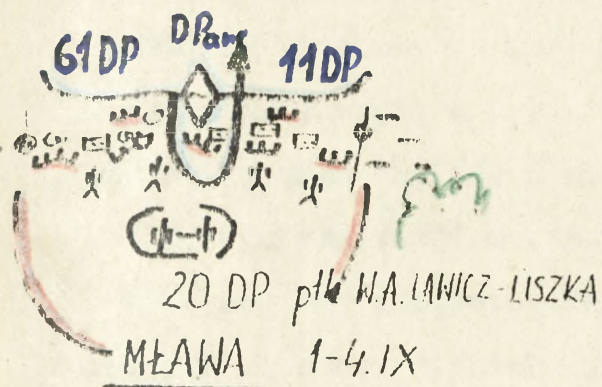 61 DP DPanc 11 DP
20 DP płk W.A. LAWICZ-LISZKA
MŁAWA 1-4.IX